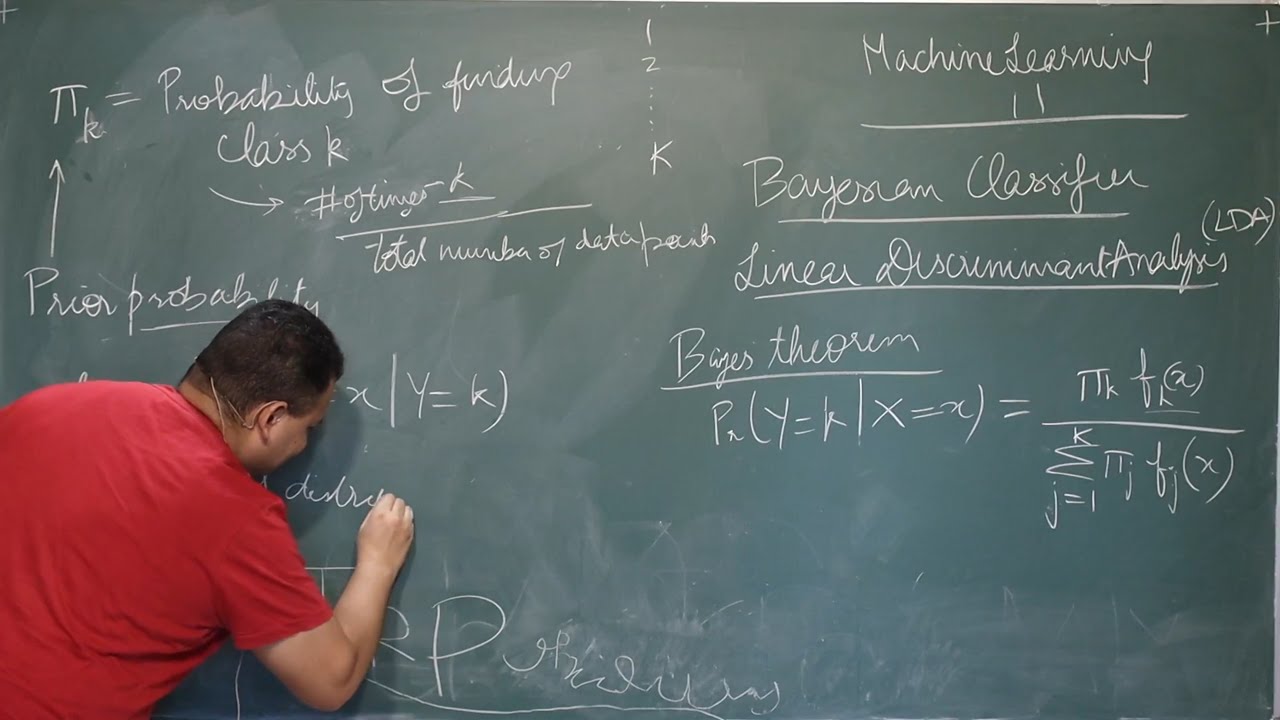 π_k = Probability of finding
class k
# of times k
Total number of data points
Prior probability
x | Y = k)
1
2
⋮
K
Machine Learning
11
Bayesian Classifier
Linear Discriminant Analysis (LDA)
Bayes theorem
Pr(Y=k | X=x) = π_k f_k(x) / Σ_{j=1}^{K} π_j f_j(x)
RP